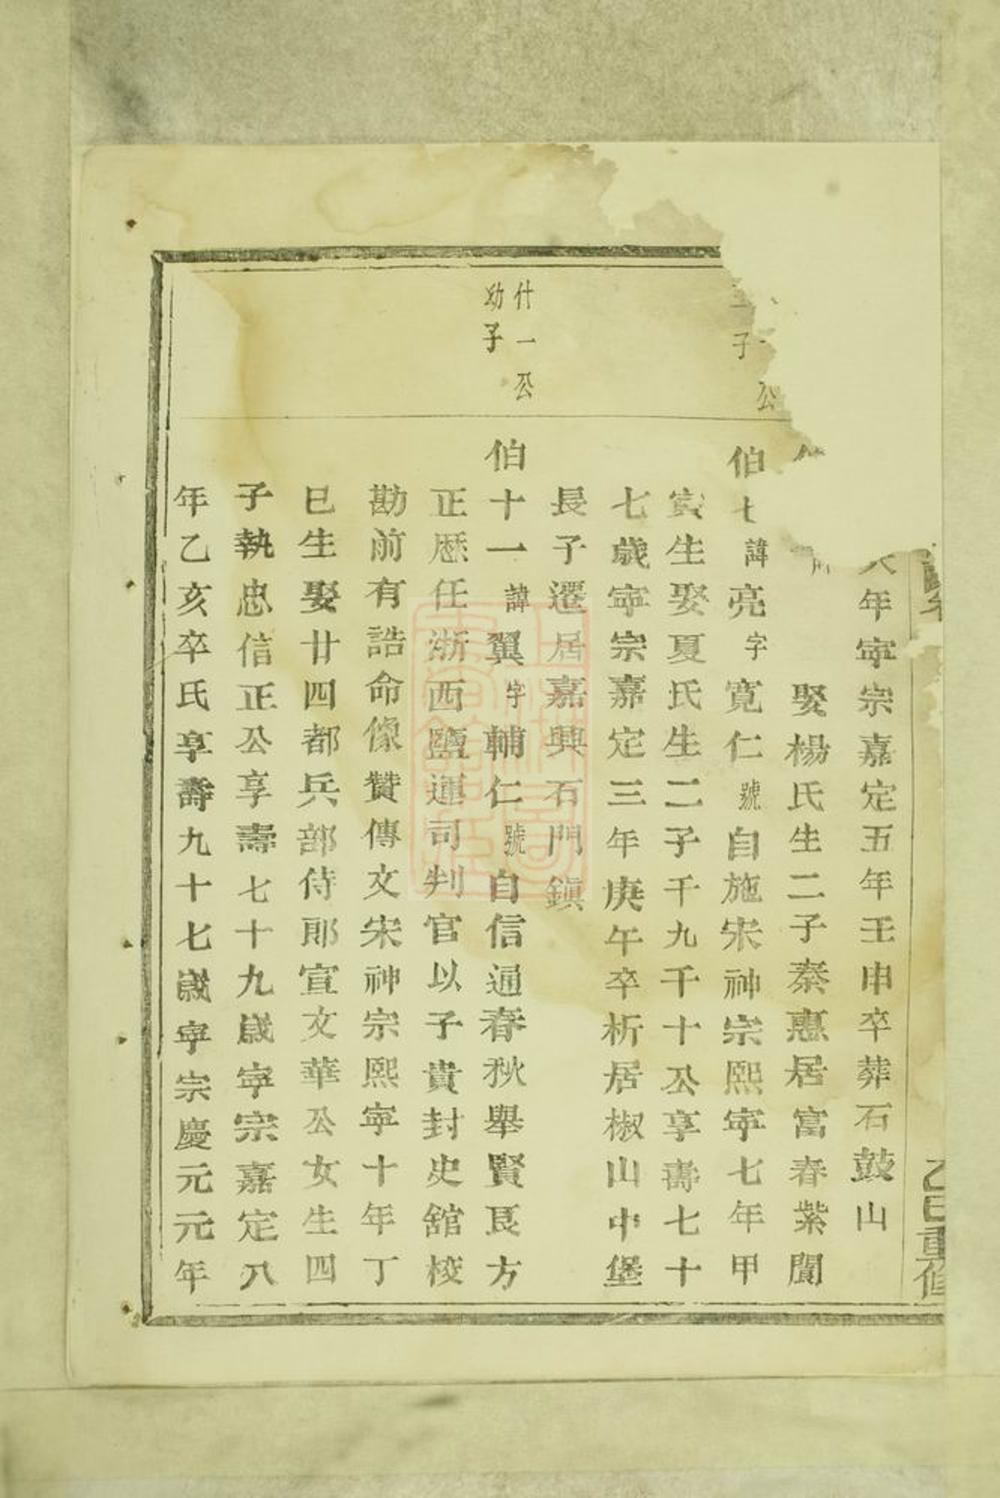 乙巳重修
年寕宗嘉定五年壬申卒葬石鼓山
娶楊氏生二子秦惠居富春紫閬
公
子
伯七諱亮字寛仁號自施宋神宗熙寕七年甲
寅生娶夏氏生二子千九千十公享壽七十
七歲寕宗嘉定三年庚午卒析居椒山中堡
長子遷居嘉興石門鎮
什一公
幼子
伯十一諱翼字輔仁號自信通春秋舉賢良方
正歴任浙西鹽運司判官以子貴封史舘校
勘前有誥命像贊傳文宋神宗熙寕十年丁
巳生娶廿四都兵部侍郎宣文華公女生四
子執忠信正公享壽七十九歲寕宗嘉定八
年乙亥卒氏享壽九十七歲寕宗慶元元年